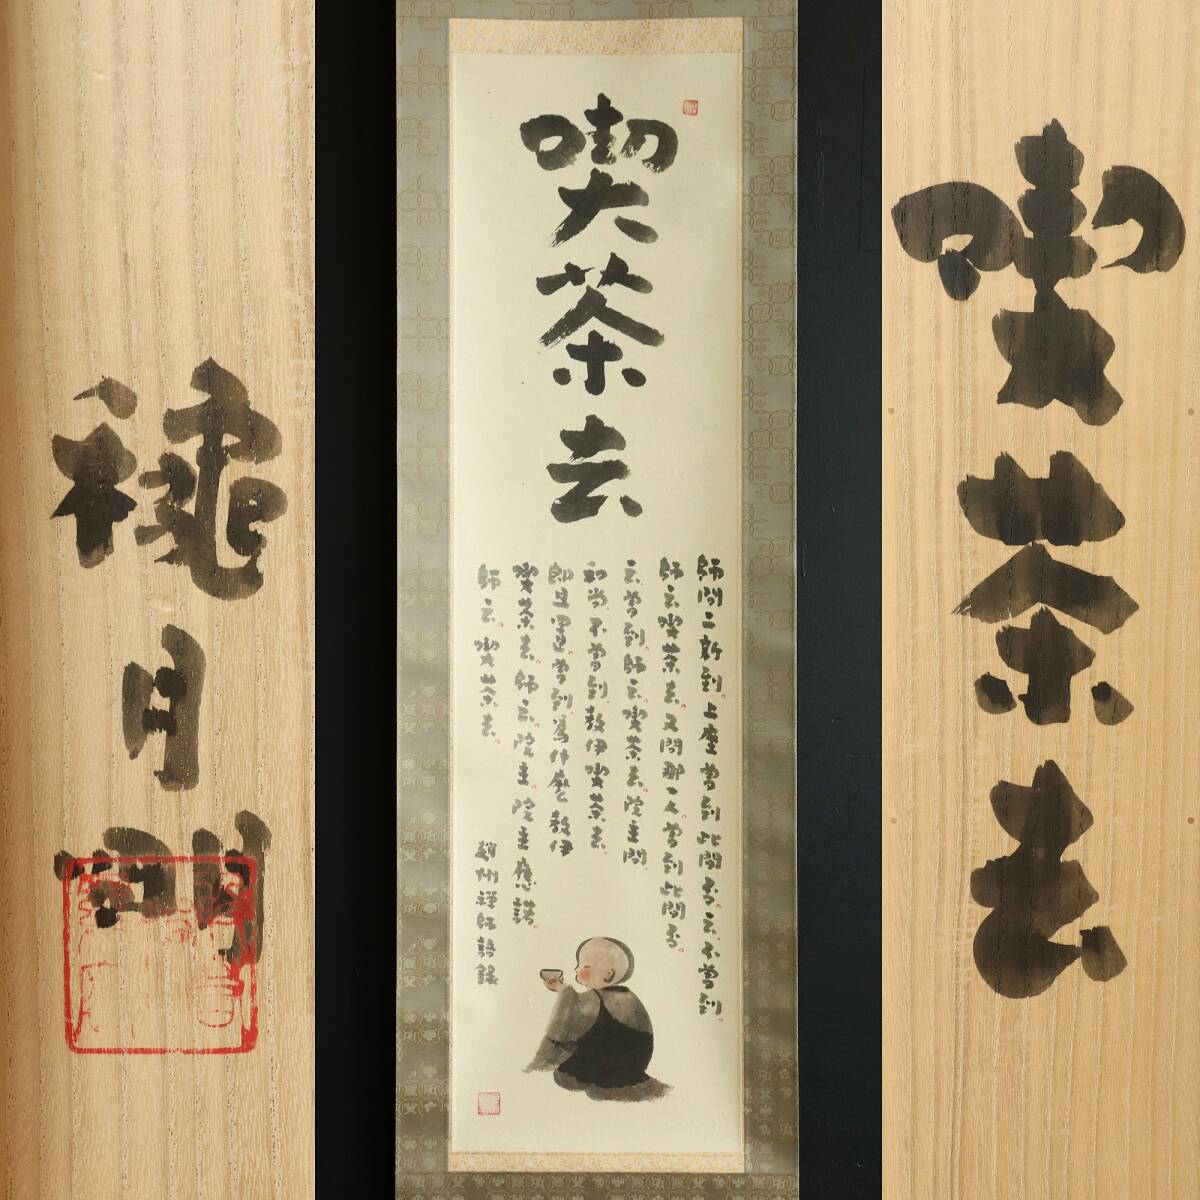 喫茶去
師問二新到。上座曽到此間否。云、不曽到。
師云、喫茶去。又問那一人、曽到此間否。
云、曽到。師云、喫茶去。院主問、
和尚、不曽到、教伊喫茶去、
即且置、曽到、為什麼教伊
喫茶去。師云、院主。院主應諾。
師云、喫茶去。
趙州禅師語録
喫茶去
穐月明